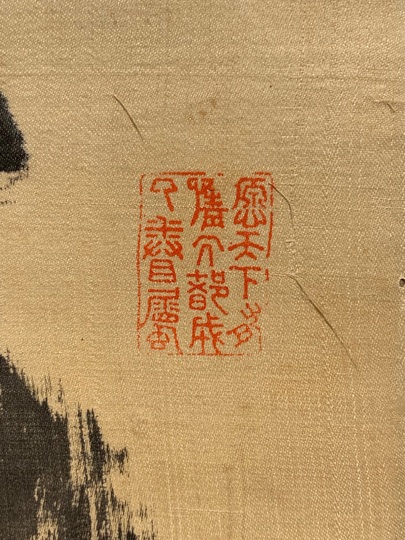 愿天下有
情人都成
了眷屬